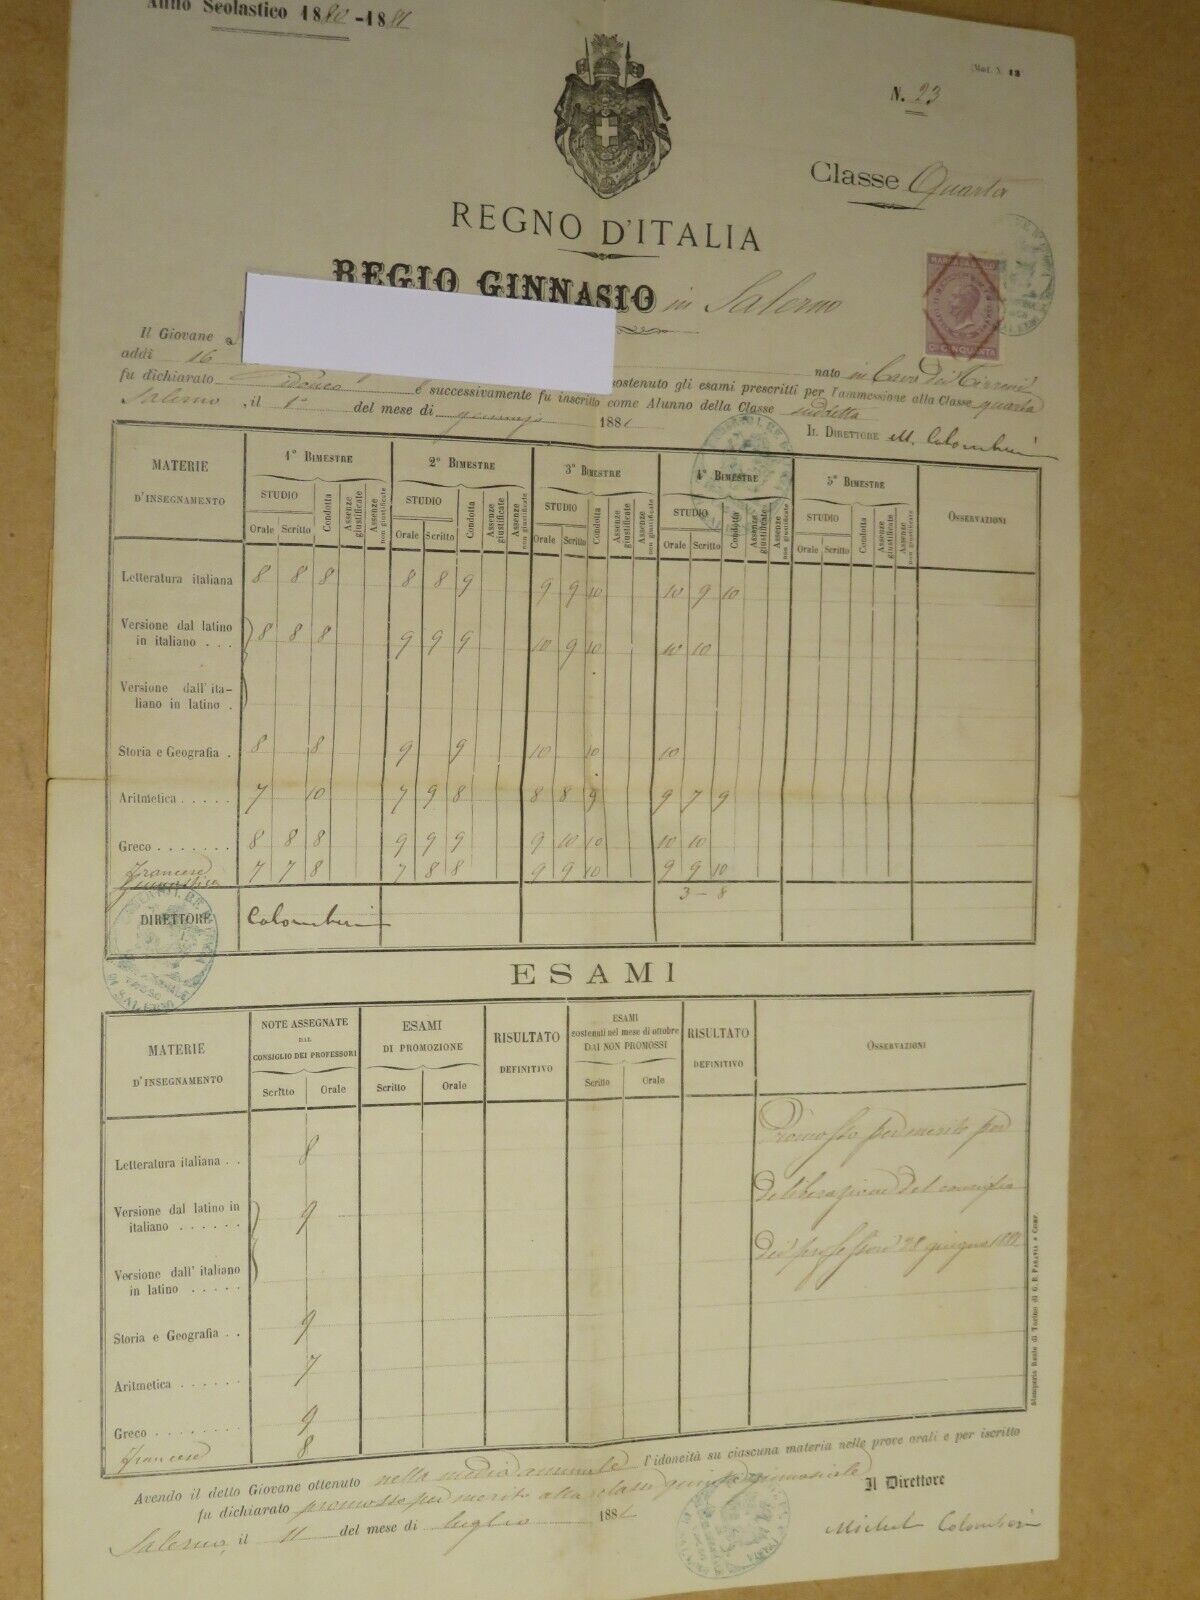 Anno Scolastico 1880-1881
Mod. N. 13
N. 23
Classe Quarta
REGNO D'ITALIA
REGIO GINNASIO in Salerno
MARCA DA BOLLO
C.MI CINQUANTA
Il Giovane
nato in Cava dei Tirreni
addì 16
sostenuto gli esami prescritti per l'ammessione alla Classe quarta
fu dichiarato Idoneo e successivamente fu inscritto come Alunno della Classe suddetta
Salerno, il 1° del mese di 1881
IL DIRETTORE M. Colomberi
MATERIE D'INSEGNAMENTO 1° BIMESTRE 2° BIMESTRE 3° BIMESTRE 4° BIMESTRE 5° BIMESTRE OSSERVAZIONI
STUDIO Condotta Assenze giustificate Assenze non giustificate STUDIO Condotta Assenze giustificate Assenze non giustificate STUDIO Condotta Assenze giustificate Assenze non giustificate STUDIO Condotta Assenze giustificate Assenze non giustificate STUDIO Condotta Assenze giustificate Assenze non giustificate
Orale Scritto Orale Scritto Orale Scritto Orale Scritto Orale Scritto
Letteratura italiana 8 8 8 8 8 9 9 9 10 10 9 10
Versione dal latino in italiano . . . 8 8 8 9 9 9 10 9 10 10 10
Versione dall'italiano in latino .
Storia e Geografia . 8 8 9 9 10 10 10
Aritmetica . . . . . 7 10 7 9 8 8 8 9 9 7 9
Greco . . . . . . . 8 8 8 9 9 9 9 10 10 10 10
Francese 7 7 8 7 8 8 9 9 10 9 9 10
3 - 8
DIRETTORE Colomberi
ESAMI
MATERIE D'INSEGNAMENTO NOTE ASSEGNATE DAL CONSIGLIO DEI PROFESSORI ESAMI DI PROMOZIONE RISULTATO DEFINITIVO ESAMI sostenuti nel mese di ottobre DAI NON PROMOSSI RISULTATO DEFINITIVO OSSERVAZIONI
Scritto Orale Scritto Orale Scritto Orale
Letteratura italiana . . 8
Versione dal latino in italiano . . . . . . 9
Versione dall'italiano in latino . . . . .
Storia e Geografia . . 9
Aritmetica . . . . . . 7
Greco . . . . . . . 9
Francese 8
Promosso per merito per
deliberazione del consiglio
dei professori 28 giugno 1881
Stamperia Reale di Torino di G. B. PARAVIA e COMP.
Avendo il detto Giovane ottenuto nella media annuale l'idoneità su ciascuna materia nelle prove orali e per iscritto
fu dichiarato promosso per merito alla classe quinta ginnasiale
Salerno, il 11 del mese di luglio 1881
Il Direttore
Michel Colomberi